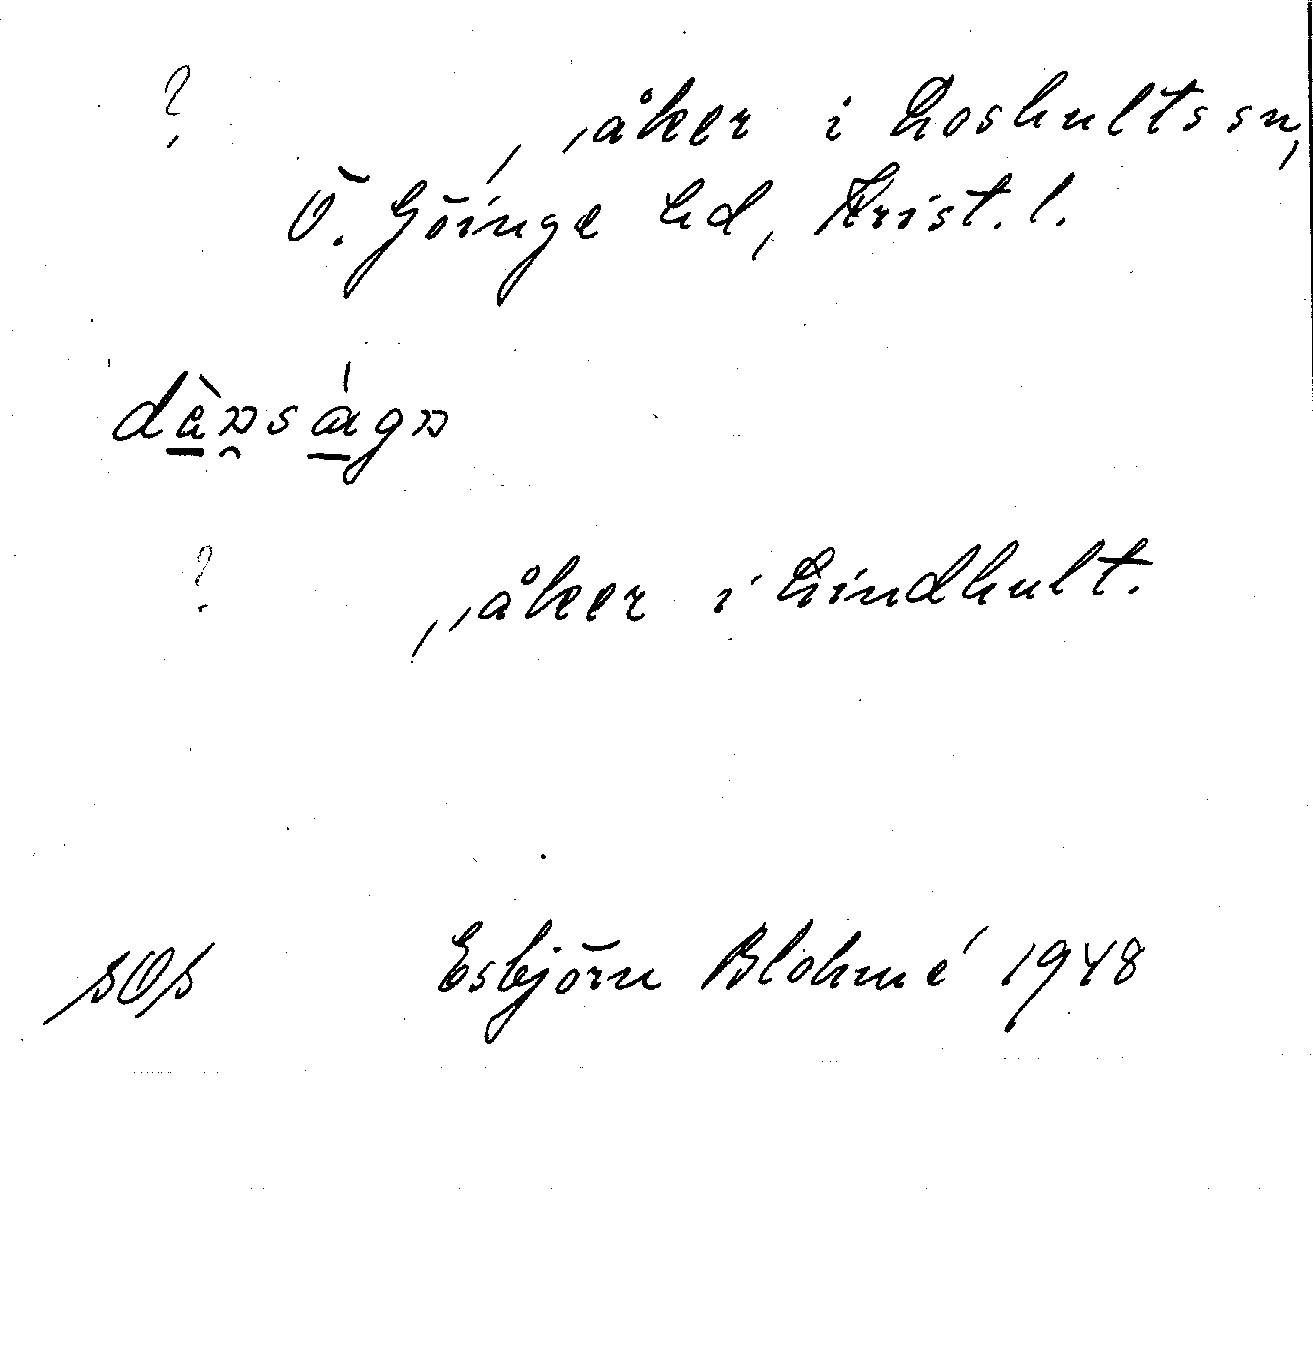 ? , , åker i Loshults sn,
Ö. Göinge hd, Krist. l.
? , , åker i Lindhult.
Esbjörn Blohmé 1948